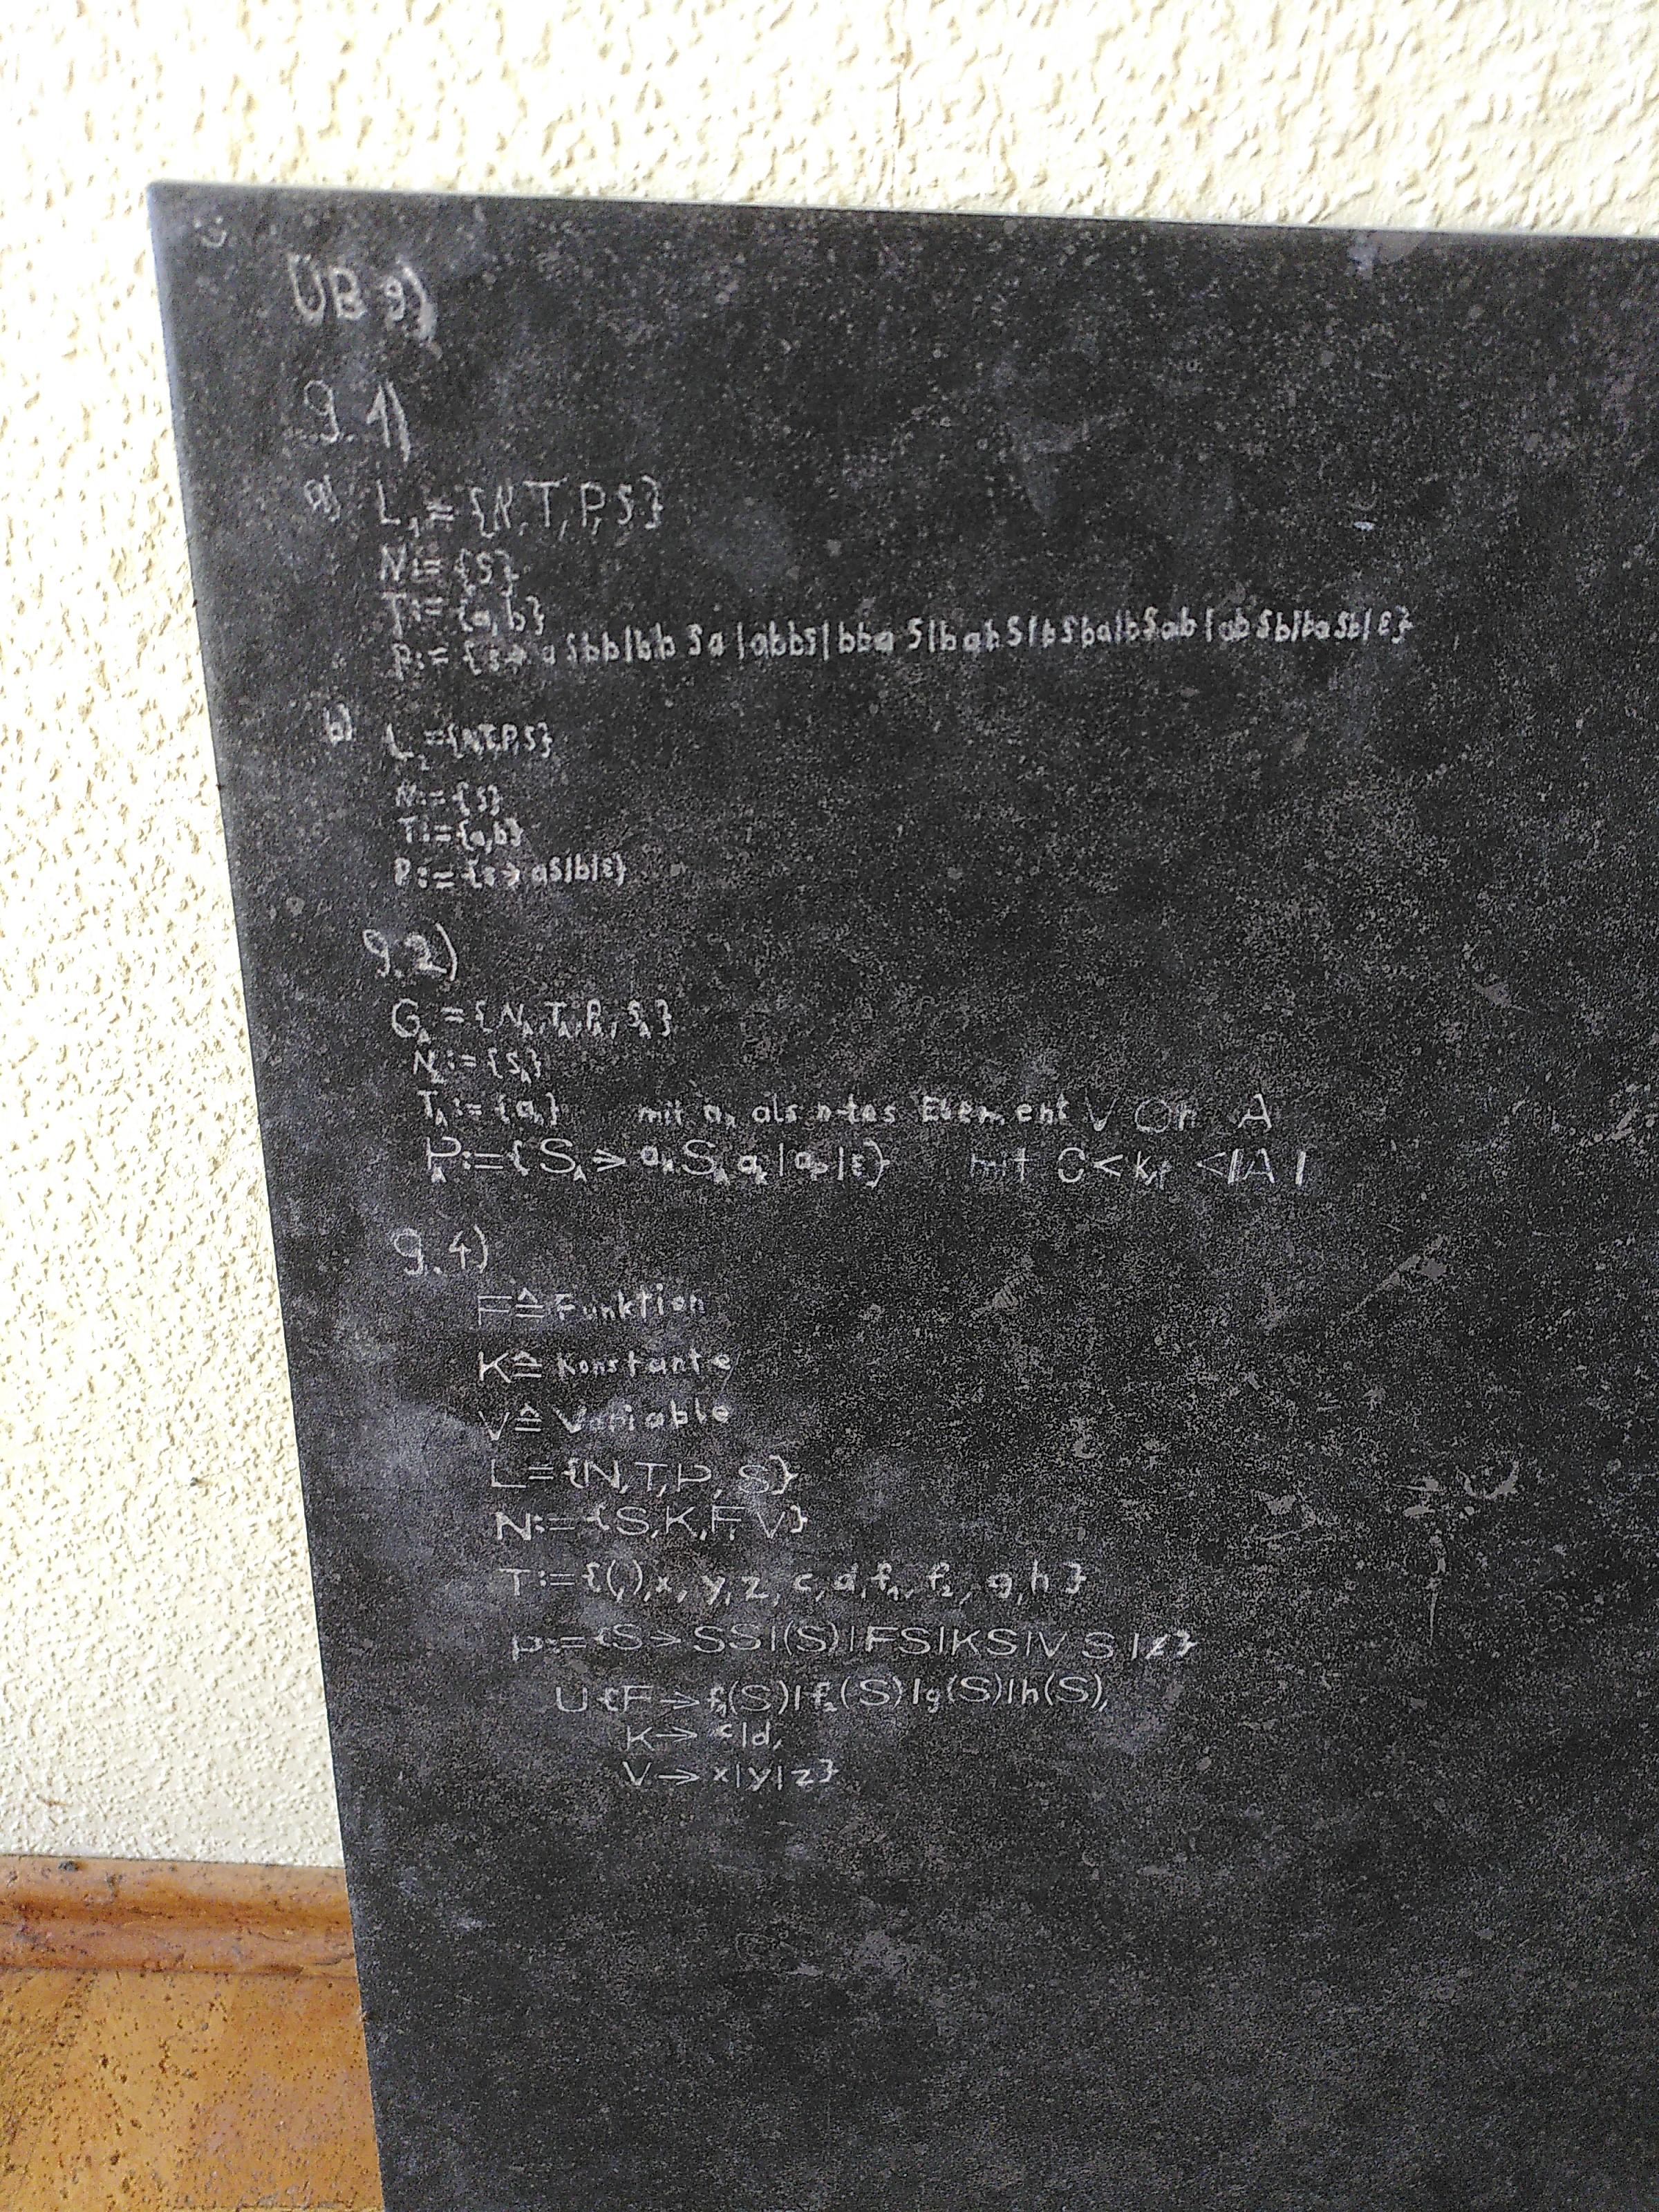 ÜB 9)
9.1)
a) L₁ = {N,T,P,S}
N:= {S}
T:= {a,b}
P:= {S→ aSbb|bbSa|abbS|bbaS|babS|bSba|bSab|abSb|baSb|ε}
b) L₂ = {N,T,P,S}
N:= {S}
T:= {a,b}
P:= {S→ aS|b|ε}
9.2)
G_A = {N_A, T_A, P_A, S_A}
N_A := {S_A}
T_A := {aₙ} mit aₙ als n-tes Element von A
P_A := {S_A → a_k S_A a_k | a_p | ε} mit 0<k,p <|A|
9.4)
F ≙ Funktion
K ≙ Konstante
V ≙ Variable
L={N,T,P,S}
N:={S,K,F,V}
T:={(,),x,y,z,c,d,f₁,f₂,g,h}
P:={S→SS|(S)|FS|KS|VS|ε}
U {F→f₁(S)|f₂(S)|g(S)|h(S),
K→c|d,
V→x|y|z}